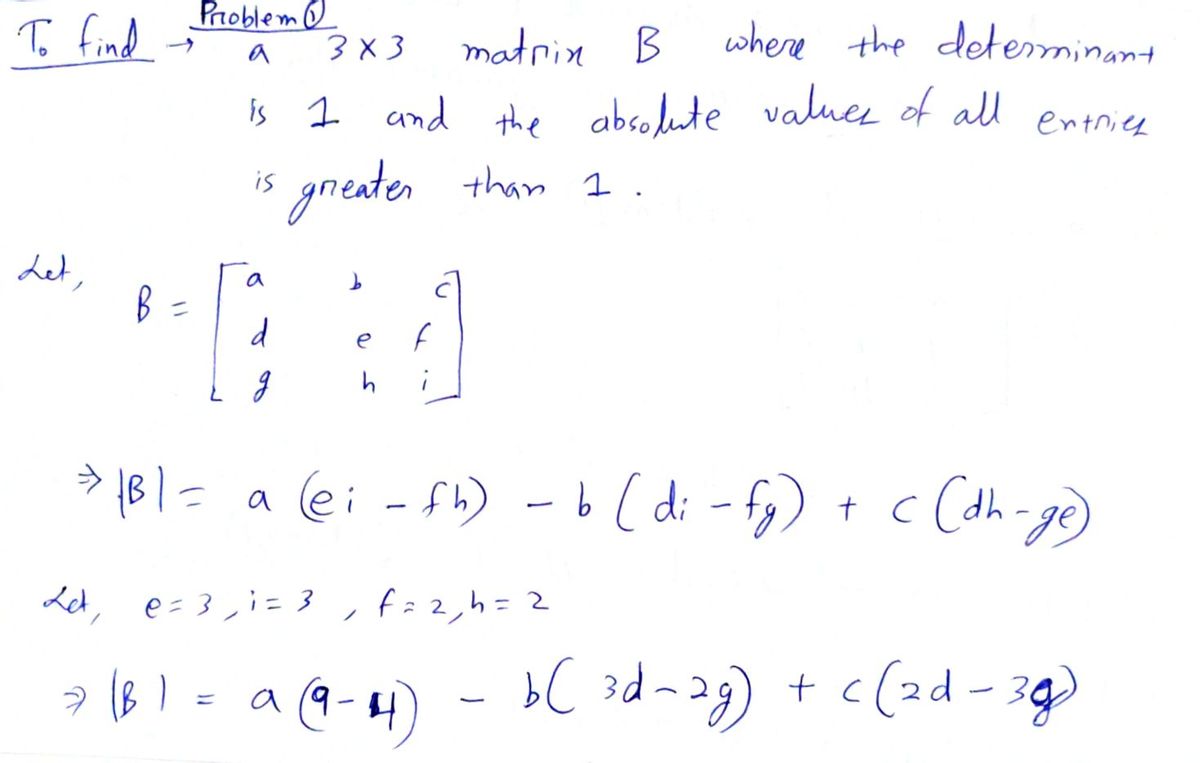 Problem ①
To find → a 3 × 3 matrix B where the determinant
is 1 and the absolute values of all entries
is greater than 1 .
Let,
B = [ a b c
d e f
g h i ]
⇒ |B| = a (ei - fh) - b (di - fg) + c (dh - ge)
Let, e = 3 , i = 3 , f = 2 , h = 2
⇒ |B| = a (9-4) - b( 3d - 2g) + c (2d - 3g)